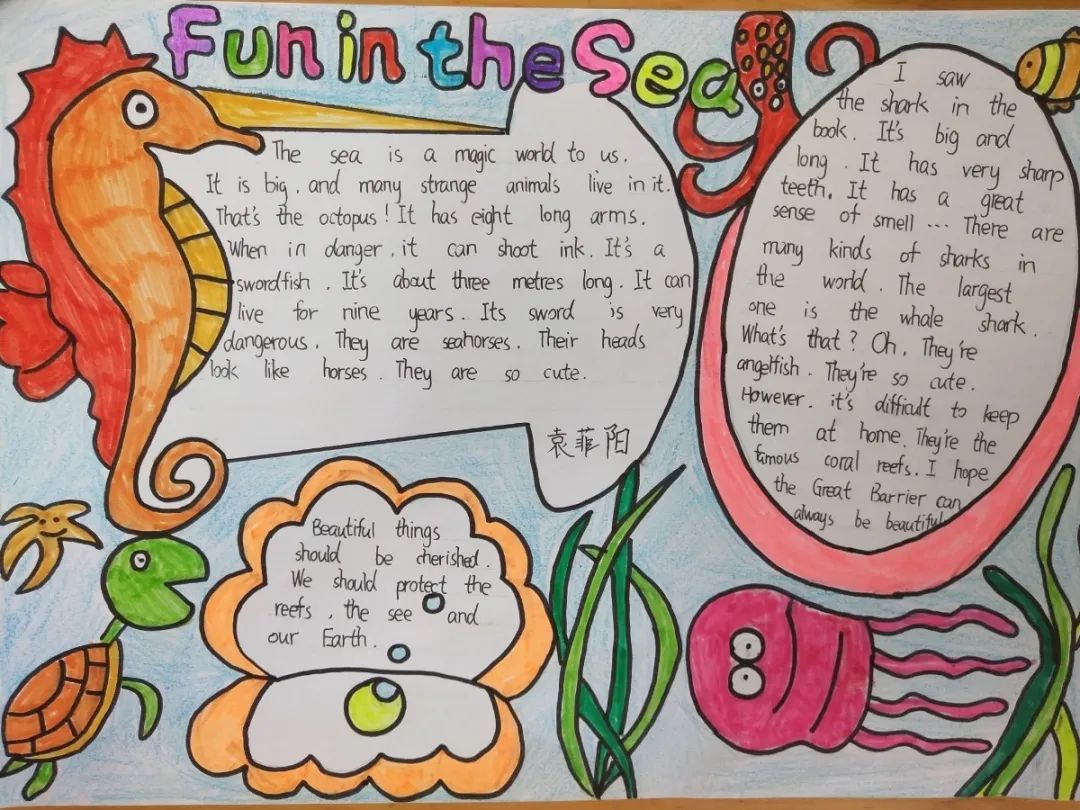 Fun in the Sea
The sea is a magic world to us.
It is big, and many strange animals live in it.
That's the octopus! It has eight long arms.
When in danger, it can shoot ink. It's a
swordfish. It's about three metres long. It can
live for nine years. Its sword is very
dangerous. They are seahorses. Their heads
look like horses. They are so cute.
袁菲阳
I saw
the shark in the
book. It's big and
long. It has very sharp
teeth. It has a great
sense of smell ... There are
many kinds of sharks in
the world. The largest
one is the whale shark.
What's that? Oh, They're
angelfish. They're so cute.
However, it's difficult to keep
them at home. They're the
famous coral reefs. I hope
the Great Barrier can
always be beautiful
Beautiful things
should be cherished.
We should protect the
reefs, the see and
our Earth.